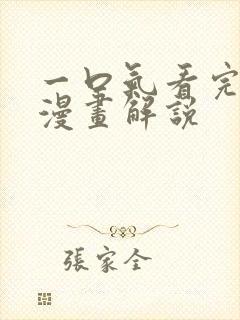 一口氣看完
漫畫解說
張家全